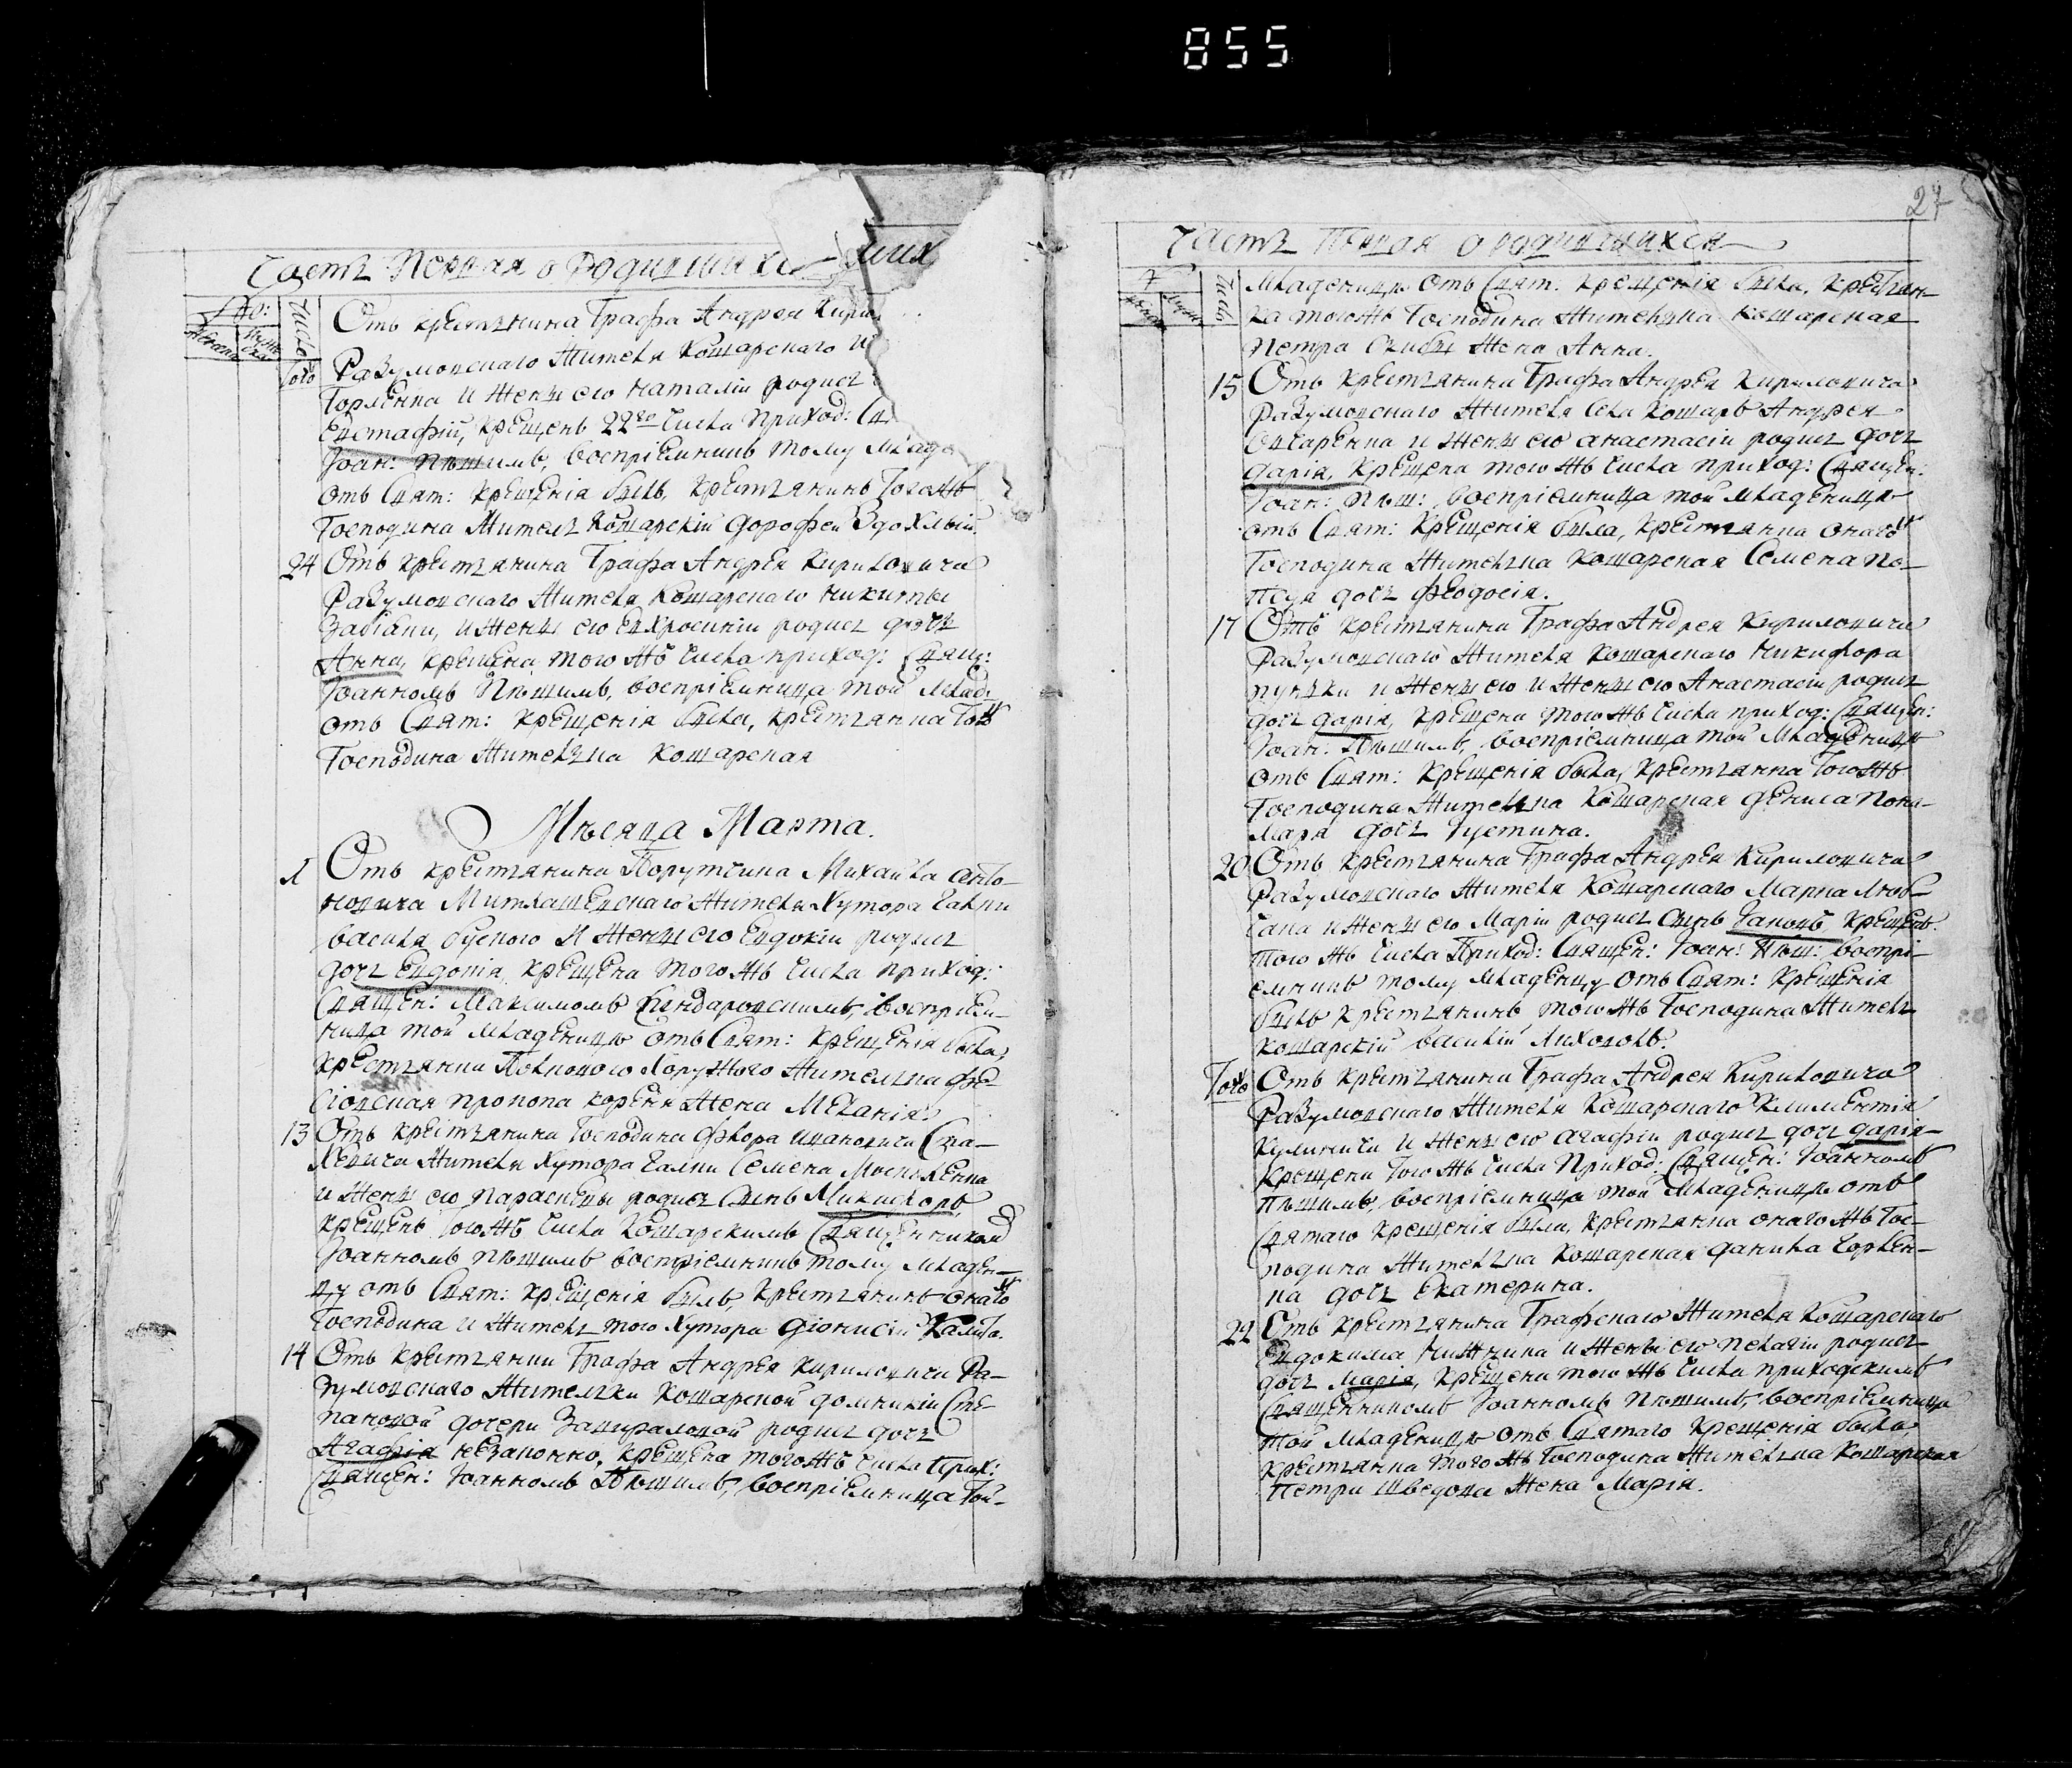 855
27
Часть Первая о Родившихся
Чи:
Число
женска
мужеска
Того
Отъ крестянина Графа Андрея Кири
Разумовскаго жителя Кошарскаго И
Горленка и жены его Наталіи родился
Евстафій, крещенъ 22го числа приход: Св
Іоан: Пѣшимъ, воспріемникъ тому млад
отъ Свят: крещенія былъ, крестянинъ тогожъ
Господина житель Кошарскій Дорофей Здохлый.
24 Отъ крестянина Графа Андрея Кириловича
Разумовскаго жителя Кошарскаго Никиты
Забіяки, и жены его Евхросиніи родися дочь
Анна, крещена того жъ числа приход: Свящ:
Іоанномъ Пѣшимъ, воспріемница той млад:
отъ Свят: крещенія была, крестянка тогожъ
Господина жителька Кошарская
Мѣсяца Марта.
1 Отъ крестянина Порутчика Михайла Анто-
новича Милашевскаго жителя Хутора Галки
Василя Буского и жены его Евдокіи родися
дочь Евдокія, крещена того жъ числа приход:
Священ: Максимомъ воспріем-
ница той младеницѣ отъ Свят: крещенія была,
крестянка Полкового Хорунжого жителька
Прокопа Кореня жена Меланія.
13 Отъ крестянина Господина Флора Ивановича Ска-
жителя Хутора Галки Семена
и жены его Параскевы родися сынъ Никифоръ
крещенъ тогожъ числа Кошарскимъ Священникомъ
Іоанномъ Пѣшимъ воспріемникъ тому младен-
цу отъ Свят: крещенія былъ, крестянинъ онагожъ
Господина и житель того Хутора Діонисій Калита.
14 Отъ крестянки Графа Андрея Кириловича Ра-
зумовскаго жителки Кошарской Домникіи Сте-
пановой дочери родися дочь
Агафія незаконно, крещена тогожъ числа прих:
Священ: Іоанномъ Пѣшимъ, воспріемница той-
Часть Первая о родившихся
Ч
женска
мужеска
число
младеницѣ отъ Свят: крещенія была, крестян-
ка тогожъ Господина жителька Кошарская
Петра жена Анна.
15 Отъ крестянина Графа Андрея Кириловича
Разумовскаго жителя села Кошаръ Андрея
и жены его Анастасіи родися дочь
Дарія, крещена того жъ числа приход: Священ:
Іоан: Пѣш: воспріемница той младеницѣ
отъ Свят: крещенія была, крестянка онагожъ
Господина жителька Кошарская Семена По-
пся дочь Феодосія.
17 Отъ крестянина Графа Андрея Кириловича
Разумовскаго жителя Кошарскаго Никифора
и жены его и жены его Анастасіи родися
дочь Дарія, крещена того жъ числа приход: Священ:
Іоан: Пѣшимъ, воспріемница той младеницѣ
отъ Свят: крещенія была, крестянка тогожъ
Господина жителька Кошарская Дениса Поно-
маря дочь Іустина.
20 Отъ крестянина Графа Андрея Кириловича
Разумовскаго жителя Кошарскаго Марка Люб-
чана и жены его Маріи родися сынъ Іаковъ крещенъ
того жъ числа Приход: Священ: Іоан: Пѣш: воспрі-
емникъ тому младенцу отъ Свят: крещенія
былъ крестянинъ, того жъ Господина житель
Кошарскій Василій Лиховолъ.
Тогожъ Отъ крестянина Графа Андрея Кириловича
Разумовскаго жителя Кошарскаго Климентія
Кулинича и жены его Агафіи родися дочь Дарія
крещена того жъ числа Приход: Священ: Іоанномъ
Пѣшимъ, воспріемница той младеницѣ отъ
Святаго крещенія была, крестянка онаго жъ Гос-
подина жителька Кошарская Данила Горлен-
ка дочь Екатерина.
22 Отъ крестянина Графскаго жителя Кошарскаго
Евдокима Нижника и жены его Пелагіи родися
дочь Марія, крещена того жъ числа приходскимъ
Священникомъ Іоанномъ Пѣшимъ, воспріемница
той младеницѣ отъ Святаго крещенія была,
крестянка того жъ Господина жителька Кошарская
Петра Шведова жена Марія.